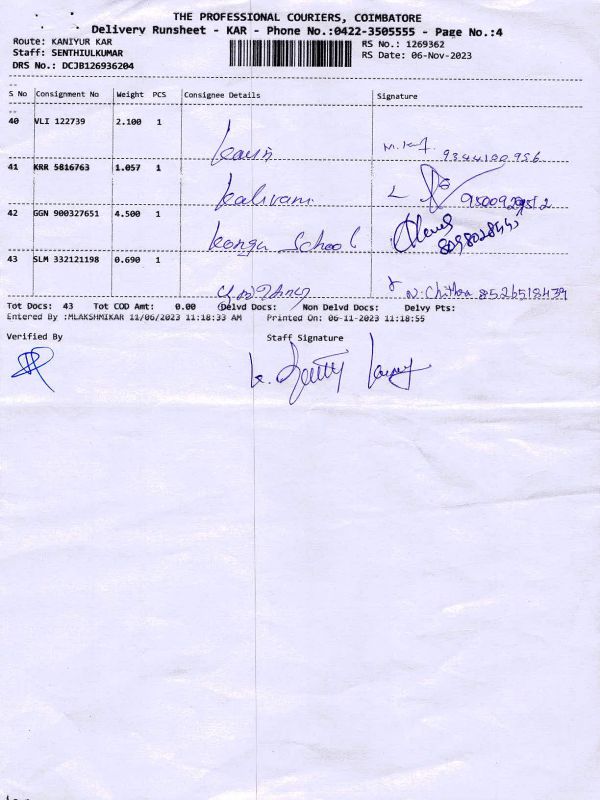 THE PROFESSIONAL COURIERS, COIMBATORE
Delivery Runsheet - KAR - Phone No.:0422-3505555 - Page No.:4
Route: KANIYUR KAR
RS No.: 1269362
Staff: SENTHIULKUMAR
RS Date: 06-Nov-2023
DRS No.: DCJB126936204
S No Consignment No Weight PCS Consignee Details Signature
40 VLI 122739 2.100 1
9344100956
41 KRR 5816763 1.057 1
Kalivani
42 GGN 900327651 4.500 1
Kongu School
43 SLM 332121198 0.690 1
N. Chithra 8526518439
Tot Docs: 43 Tot COD Amt: 0.00 Delvd Docs: Non Delvd Docs: Delvy Pts:
Entered By :MLAKSHMIKAR 11/06/2023 11:18:33 AM Printed On: 06-11-2023 11:18:55
Verified By Staff Signature